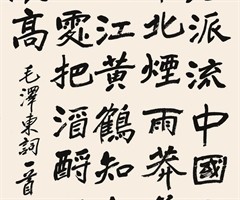 派流中國
北煙雨莽
江黃鶴知
處把酒酹
高
毛澤東詞一首